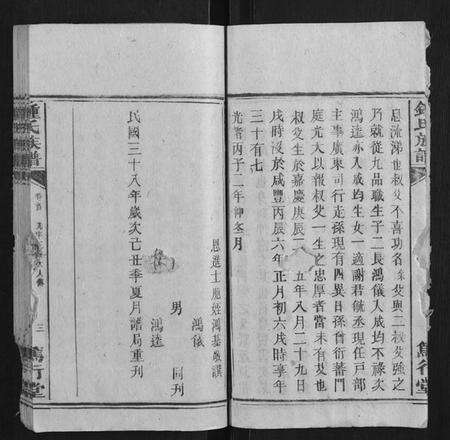 鍾氏族譜
篤行堂
息流涕也叔父不喜功名爹與二叔父強之
乃就從九品職生子二長鴻儀入成均不祿次
鴻逵亦入成均生女一適謝君 丞現任戶部
主事廣東司行走孫現有四異日孫曾衍蕃門
庭光大以報叔父一生之忠厚者當未有艾也
叔父生於嘉慶庚辰二十五年八月二十九日
戌時歿於咸豐丙辰六年正月初六戌時享年
三十有七
光緒丙子二年仲冬月
恩進士 姓鴻 敬譔
鴻儀
男 同刊
鴻逵
民國三十八年歲次己丑季夏月譜局重刊
鍾氏族譜
卷首
三
篤行堂